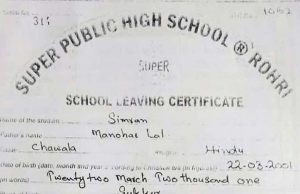 Serial No. 314
1052
SUPER PUBLIC HIGH SCHOOL ® ROHRI
SUPER
SCHOOL LEAVING CERTIFICATE
Name of the student Simran
Father's name Manohar Lal
Chawala Hindu
Date of birth (date, month and year according to Christian era (in figures) 22-03-2001
(in words) Twenty two March Two thousand one
Sukkur